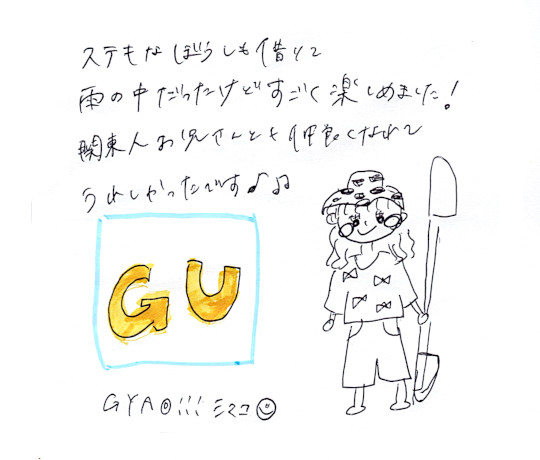 ステキなぼうしも借りて
雨の中だったけどすごく楽しめました!
関東人お兄さんとも仲良くなれて
うれしかったです♪♫
GU
GYAO!!! ミマコ☺